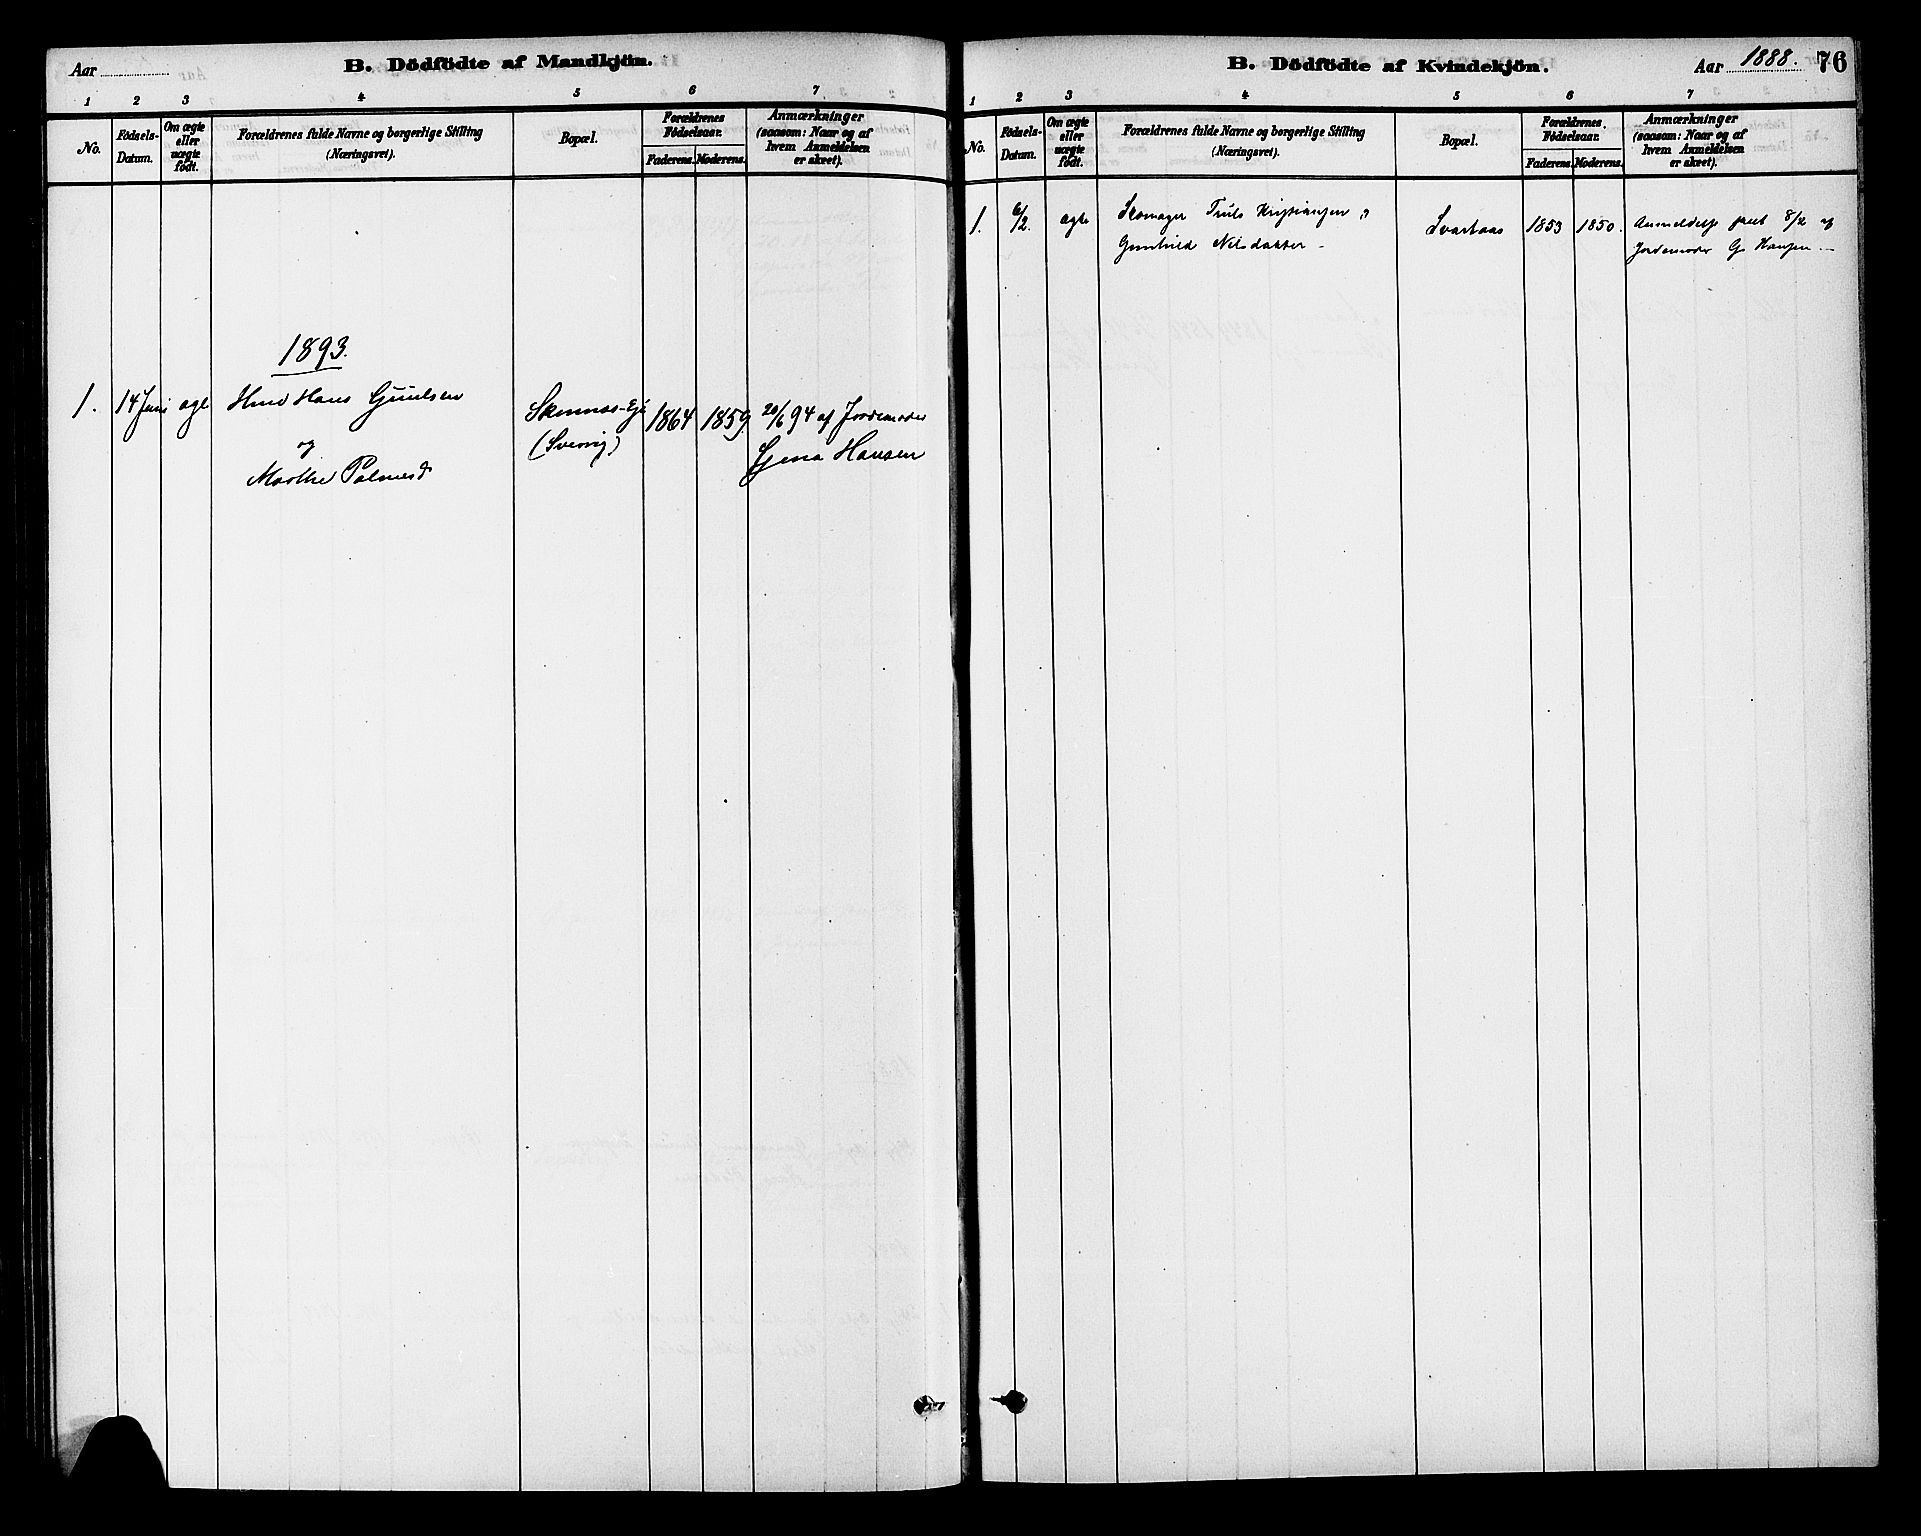 Aar
B. Dödfödte af Mandkjön.
1 2 3 4 5 6 7
No.
Födsels-
Datum.
Om ægte
eller
uægte
födt.
Forældrenes fulde Navne og borgerlige Stilling
(Næringsvei).
Bopæl.
Forældrenes
Födselsaar.
Faderens. Moderens.
Anmærkninger
(saasom: Naar og af
hvem Anmeldelsen
er skeet).
1893.
1. 14 Juni ægte Hans Gjulsen
og
Marthe Palmesd
Eje
1864 1859. 20/6 94 af Jordemoder
Gina Hansen
B. Dödfödte af Kvindekjön.
Aar 1888. 76
1 2 3 4 5 6 7
No.
Födsels-
Datum.
Om ægte
eller
uægte
födt.
Forældrenes fulde Navne og borgerlige Stilling
(Næringsvei).
Bopæl.
Forældrenes
Födselsaar.
Faderens. Moderens.
Anmærkninger
(saasom: Naar og af
hvem Anmeldelsen
er skeet).
1. 6/2. ægte Skomager Truls Kristiansen og
Gunhild Nilsdatter
Svartaas 1853 1850. Anmeldelse skeet 8/2 af
Jordemoder G. Hansen